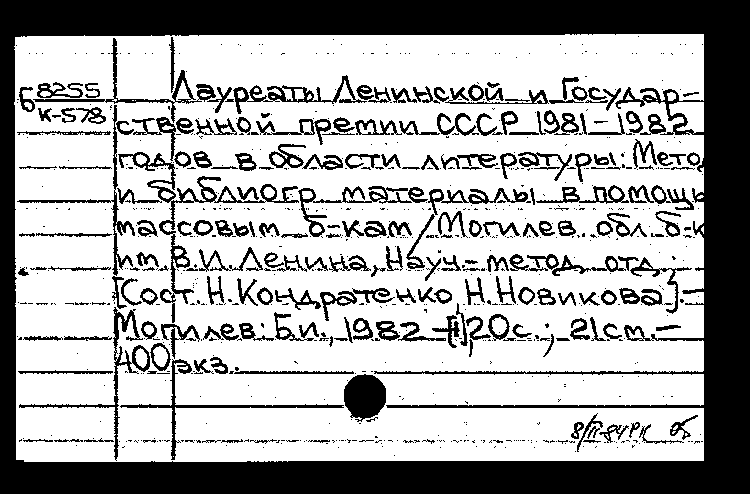 Б 8255
К-578
Лауреаты Ленинской и Государ-
ственной премии СССР 1981-1982
годов в области литературы: Метод
и библиогр. материалы в помощь
массовым б-кам / Могилев. обл. б-к
им. В.И. Ленина, Науч-метод. отд.;
[Сост. Н. Кондратенко, Н. Новикова]. —
Могилев: Б.и., 1982 - [1], 20с.; 21см. —
400 экз.